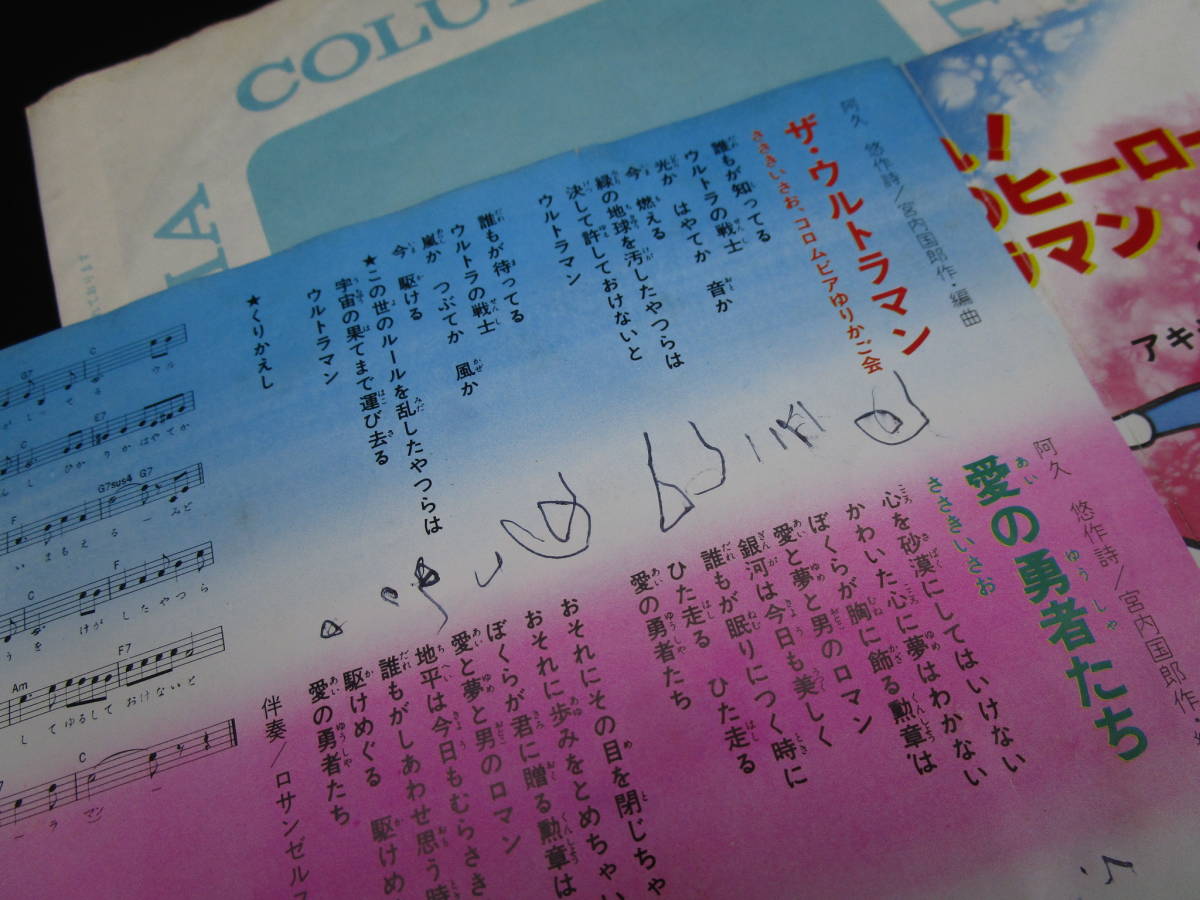 COLU
ザ・ウルトラマン
ささきいさお、コロムビアゆりかご会
阿久 悠作詩/宮内国郎作・編曲
誰もが知ってる
ウルトラの戦士
光か はやてか 音か
今 燃える
緑の地球を汚したやつらは
決して許しておけないと
ウルトラマン
誰もが待ってる
ウルトラの戦士
嵐か つぶてか 風か
今 駆ける
★この世のルールを乱したやつらは
宇宙の果てまで運び去る
ウルトラマン
★くりかえし
愛の勇者たち
ささきいさお
阿久 悠作詩/宮内国郎作
心を砂漠にしてはいけない
かわいた心に夢はわかない
ぼくらが胸に飾る勲章は
愛と夢と男のロマン
銀河は今日も美しく
誰もが眠りにつく時に
ひた走る ひた走る
愛の勇者たち
おそれにその目を閉じちゃ
おそれに歩みをとめちゃい
ぼくらが君に贈る勲章は
愛と夢と男のロマン
地平は今日もむらさき
誰もがしあわせ思う時
駆けめぐる 駆けめ
愛の勇者たち
伴奏/ロサンゼルス
G7 C
てる ウル
C E7
ひかりか はやてか
F G7sus4 G7
いま もえる ー みど
C F
うを けが したやつら
Am F7
してゆるして おけないと
C
ー ラ マン ー
い!
のヒーロー
マン
アキ